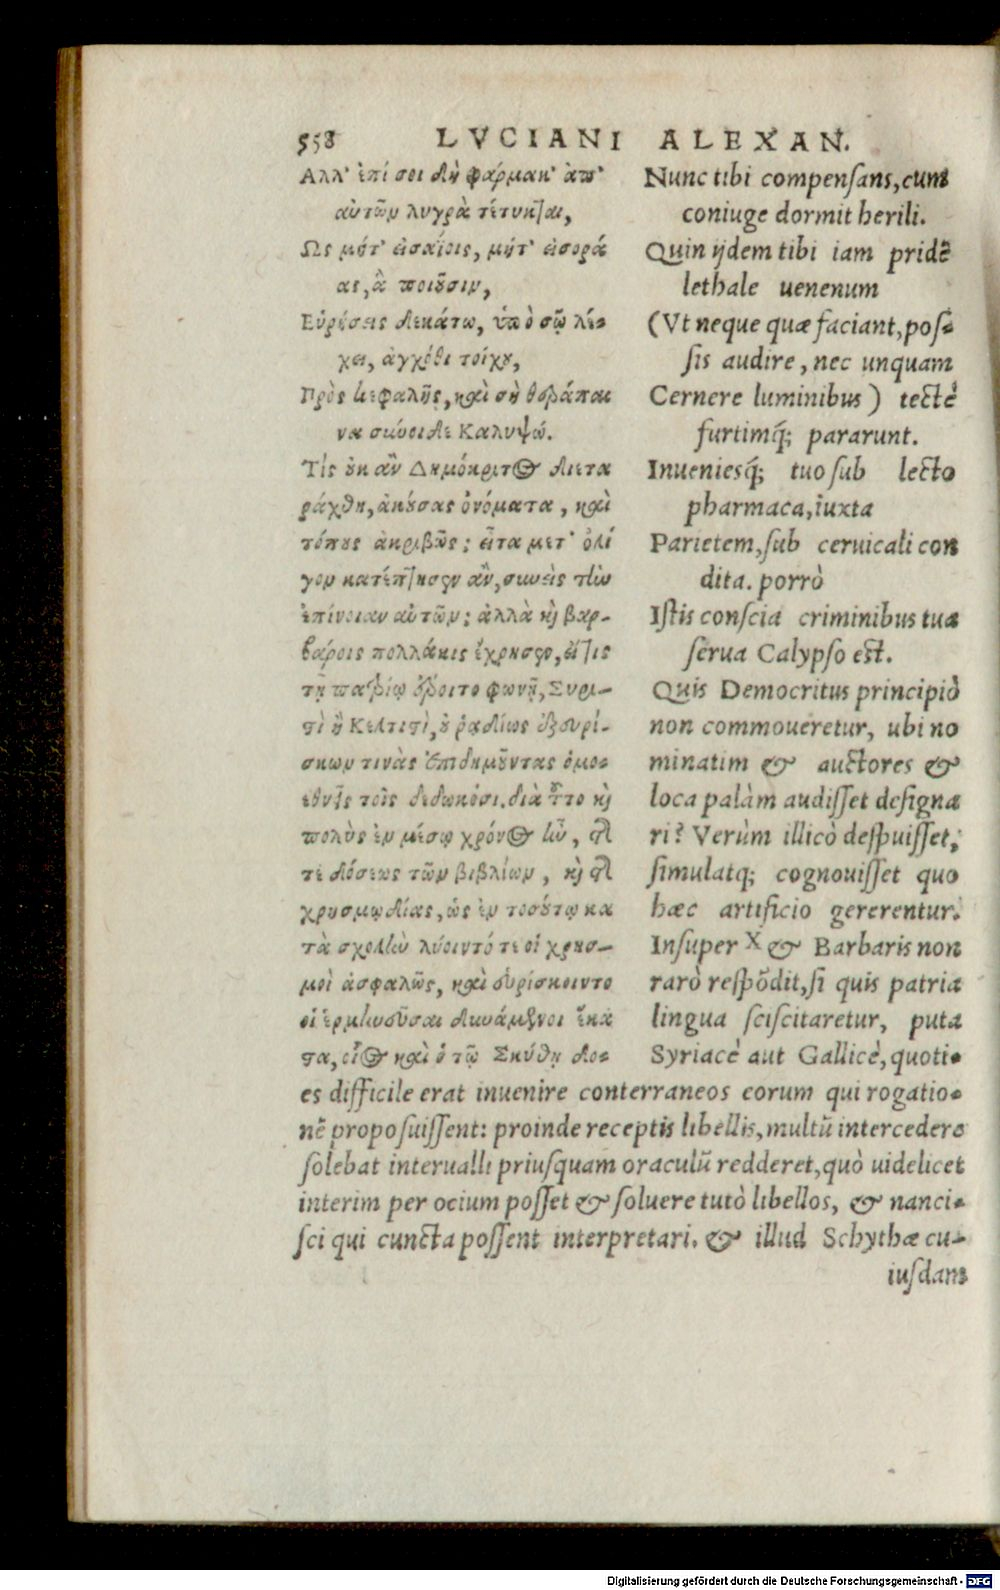 558 LVCIANI ALEXAN.
Αλλ' ἐπί σοι δὴ φάρμακ' ἀπ'
αὐτῶν λυγρὰ τέτυκται,
Ως μήτ' εἰσαΐοις, μήτ' εἰσορά
ας, ἃ ποιοῦσιν,
Εὑρήσεις δὲ κάτω, ὑπὸ σῷ λέ-
χει, ἀγχόθι τοίχου,
Πρὸς κεφαλῆς, καὶ σὴ θεράπαι
να σύνοιδε Καλυψώ.
Τίς οὐκ ἂν Δημόκριτος διετα
ράχθη, ἀκούσας ὀνόματα, καὶ
τόπους ἀκριβῶς; εἶτα μετ' ὀλί
γον κατέπτυσεν ἂν, συνεὶς τὴν
ἐπίνοιαν αὐτῶν; ἀλλὰ καὶ βαρ-
βάροις πολλάκις ἔχρησεν, εἴτις
τῇ πατρίῳ ἔροιτο φωνῇ, Συρι-
στὶ ἢ Κελτιστὶ, οὐ ῥᾳδίως ἐξευρί-
σκων τινὰς ἐπιδημοῦντας ὁμο-
εθνεῖς τοῖς δεδωκόσι. διὰ τοῦτο καὶ
πολὺς ἐν μέσῳ χρόνος ἦν, τῆς
τε δόσεως τῶν βιβλίων, καὶ τῆς
χρησμῳδίας, ὡς ἐν τοσούτῳ κα
τὰ σχολὴν λύοιντό τε οἱ χρησ-
μοὶ ἀσφαλῶς, καὶ εὑρίσκοιντο
οἱ ἑρμηνεῦσαι δυνάμενοι ἕκα
στα, οἷος καὶ ὁ τῷ Σκύθῃ δο-
Nunc tibi compensans, cum
coniuge dormit herili.
Quin ijdem tibi iam pridē
lethale uenenum
(Vt neque quæ faciant, pos-
sis audire, nec unquam
Cernere luminibus) tectè
furtimq́; pararunt.
Inueniesq́; tuo sub lecto
pharmaca, iuxta
Parietem, sub ceruicali con
dita. porrò
Istis conscia criminibus tua
serua Calypso est.
Quis Democritus principiò
non commoueretur, ubi no
minatim & auctores &
loca palàm audisset designa
ri? Verùm illicò despuisset,
simulatq; cognouisset quo
hæc artificio gererentur.
Insuper X & Barbaris non
rarò respōdit, si quis patria
lingua sciscitaretur, puta
Syriacè aut Gallicè, quoti-
es difficile erat inuenire conterraneos eorum qui rogatio-
nē proposuissent: proinde receptis libellis, multū intercedere
solebat interualli priusquam oraculū redderet, quò uidelicet
interim per ocium posset & soluere tutò libellos, & nanci-
sci qui cuncta possent interpretari. & illud Schythæ cu-
iusdam
Digitalisierung gefördert durch die Deutsche Forschungsgemeinschaft - DFG